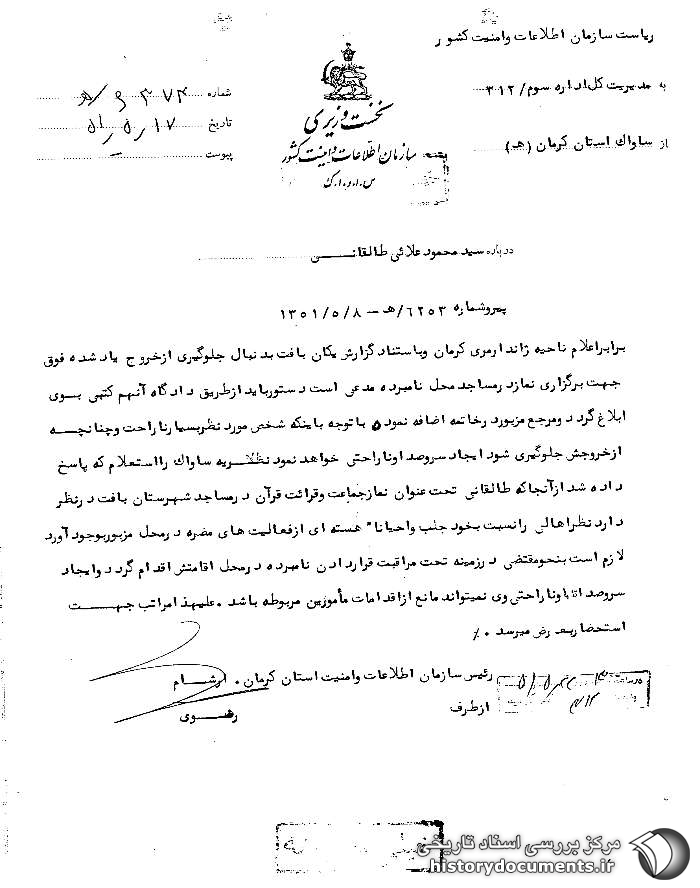 ریاست سازمان اطلاعات وامنیت کشور
به مدیریت کل اداره سوم/ ۳۱۲
از ساواک استان کرمان (هـ)
نخست وزیری
سازمان اطلاعات و امنیت کشور
س.ا.و.ا.ک
شماره ۶۳۷۲/هـ
تاریخ ۱۷ ر ۵ ر ۵۱
پیوست –
درباره سید محمود علائی طالقانــی
پیروشماره ۶۲۵۳/هـ – ۱۳۵۱/۵/۸
برابراعلام ناحیه ژاندارمری کرمان وباستناد گزارش یکان بافت بدنبال جلوگیری ازخروج یاد شده فوق
جهت برگزاری نماز درمساجد محل نامبرده مدعی است دستورباید ازطریق دادگاه آنهم کتبی بوی
ابلاغ گردد ومرجع مزبورد رخاتمه اضافه نموده باتوجه باینکه شخص مورد نظربسیارناراحت وچنانچــه
ازخروجش جلوگیری شود ایجاد سروصداوناراحتی خواهد نمود نظریه ساواک رااستعلام که پاسخ
داده شد ازآنجاکه طالقانی تحت عنوان نمازجماعت وقرائت قرآن درمساجد شهرستان بافت درنظر
دارد نظراهالی رانسبت بخود جلب واحیانا" هسته ای ازفعالیت های مضره درمحل مزبوربوجود آورد
لازم است بنحومقتضی درزمینه تحت مراقبت قراردادن نامبرده درمحل اقامتش اقدام گردد وایجاد
سروصدا وناراحتی وی نمیتواند مانع ازاقدامات مأمورین مربوطه باشد . علیهذا مراتب جهــت
استحضاربعرض میرسد ./
رئیس سازمان اطلاعات وامنیت استان کرمان . آرشـام
ازطرف رضـوی
مرکز بررسی اسناد تاریخی
historydocuments.ir